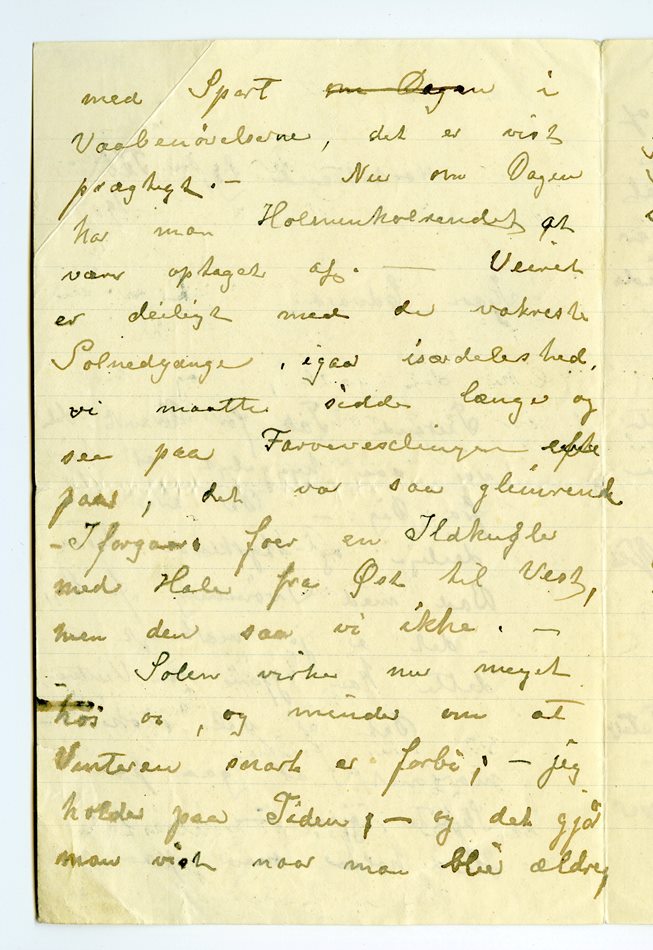 med Sport om Dagen i
Vaabenøvelserne, det er vist
prægtigt. — Nu om Dagen
har man Holmenkolrendet at
være optaget af. — Veiret
er deiligt med de vakreste
Solnedgange, igaar isærdeleshed,
vi maatte sidde længe og
see paa Farvevexlingen efte
paa, det var saa glimrende
— Iforgaars foer en Ildkugle
med Hale fra Øst til Vest,
men den saa vi ikke. —
Solen virker nu meget
hos os, og minder om at
Vinteren snart er forbi, — jeg
holder paa Tiden, — og det gjør
man vist naar man blir ældre,